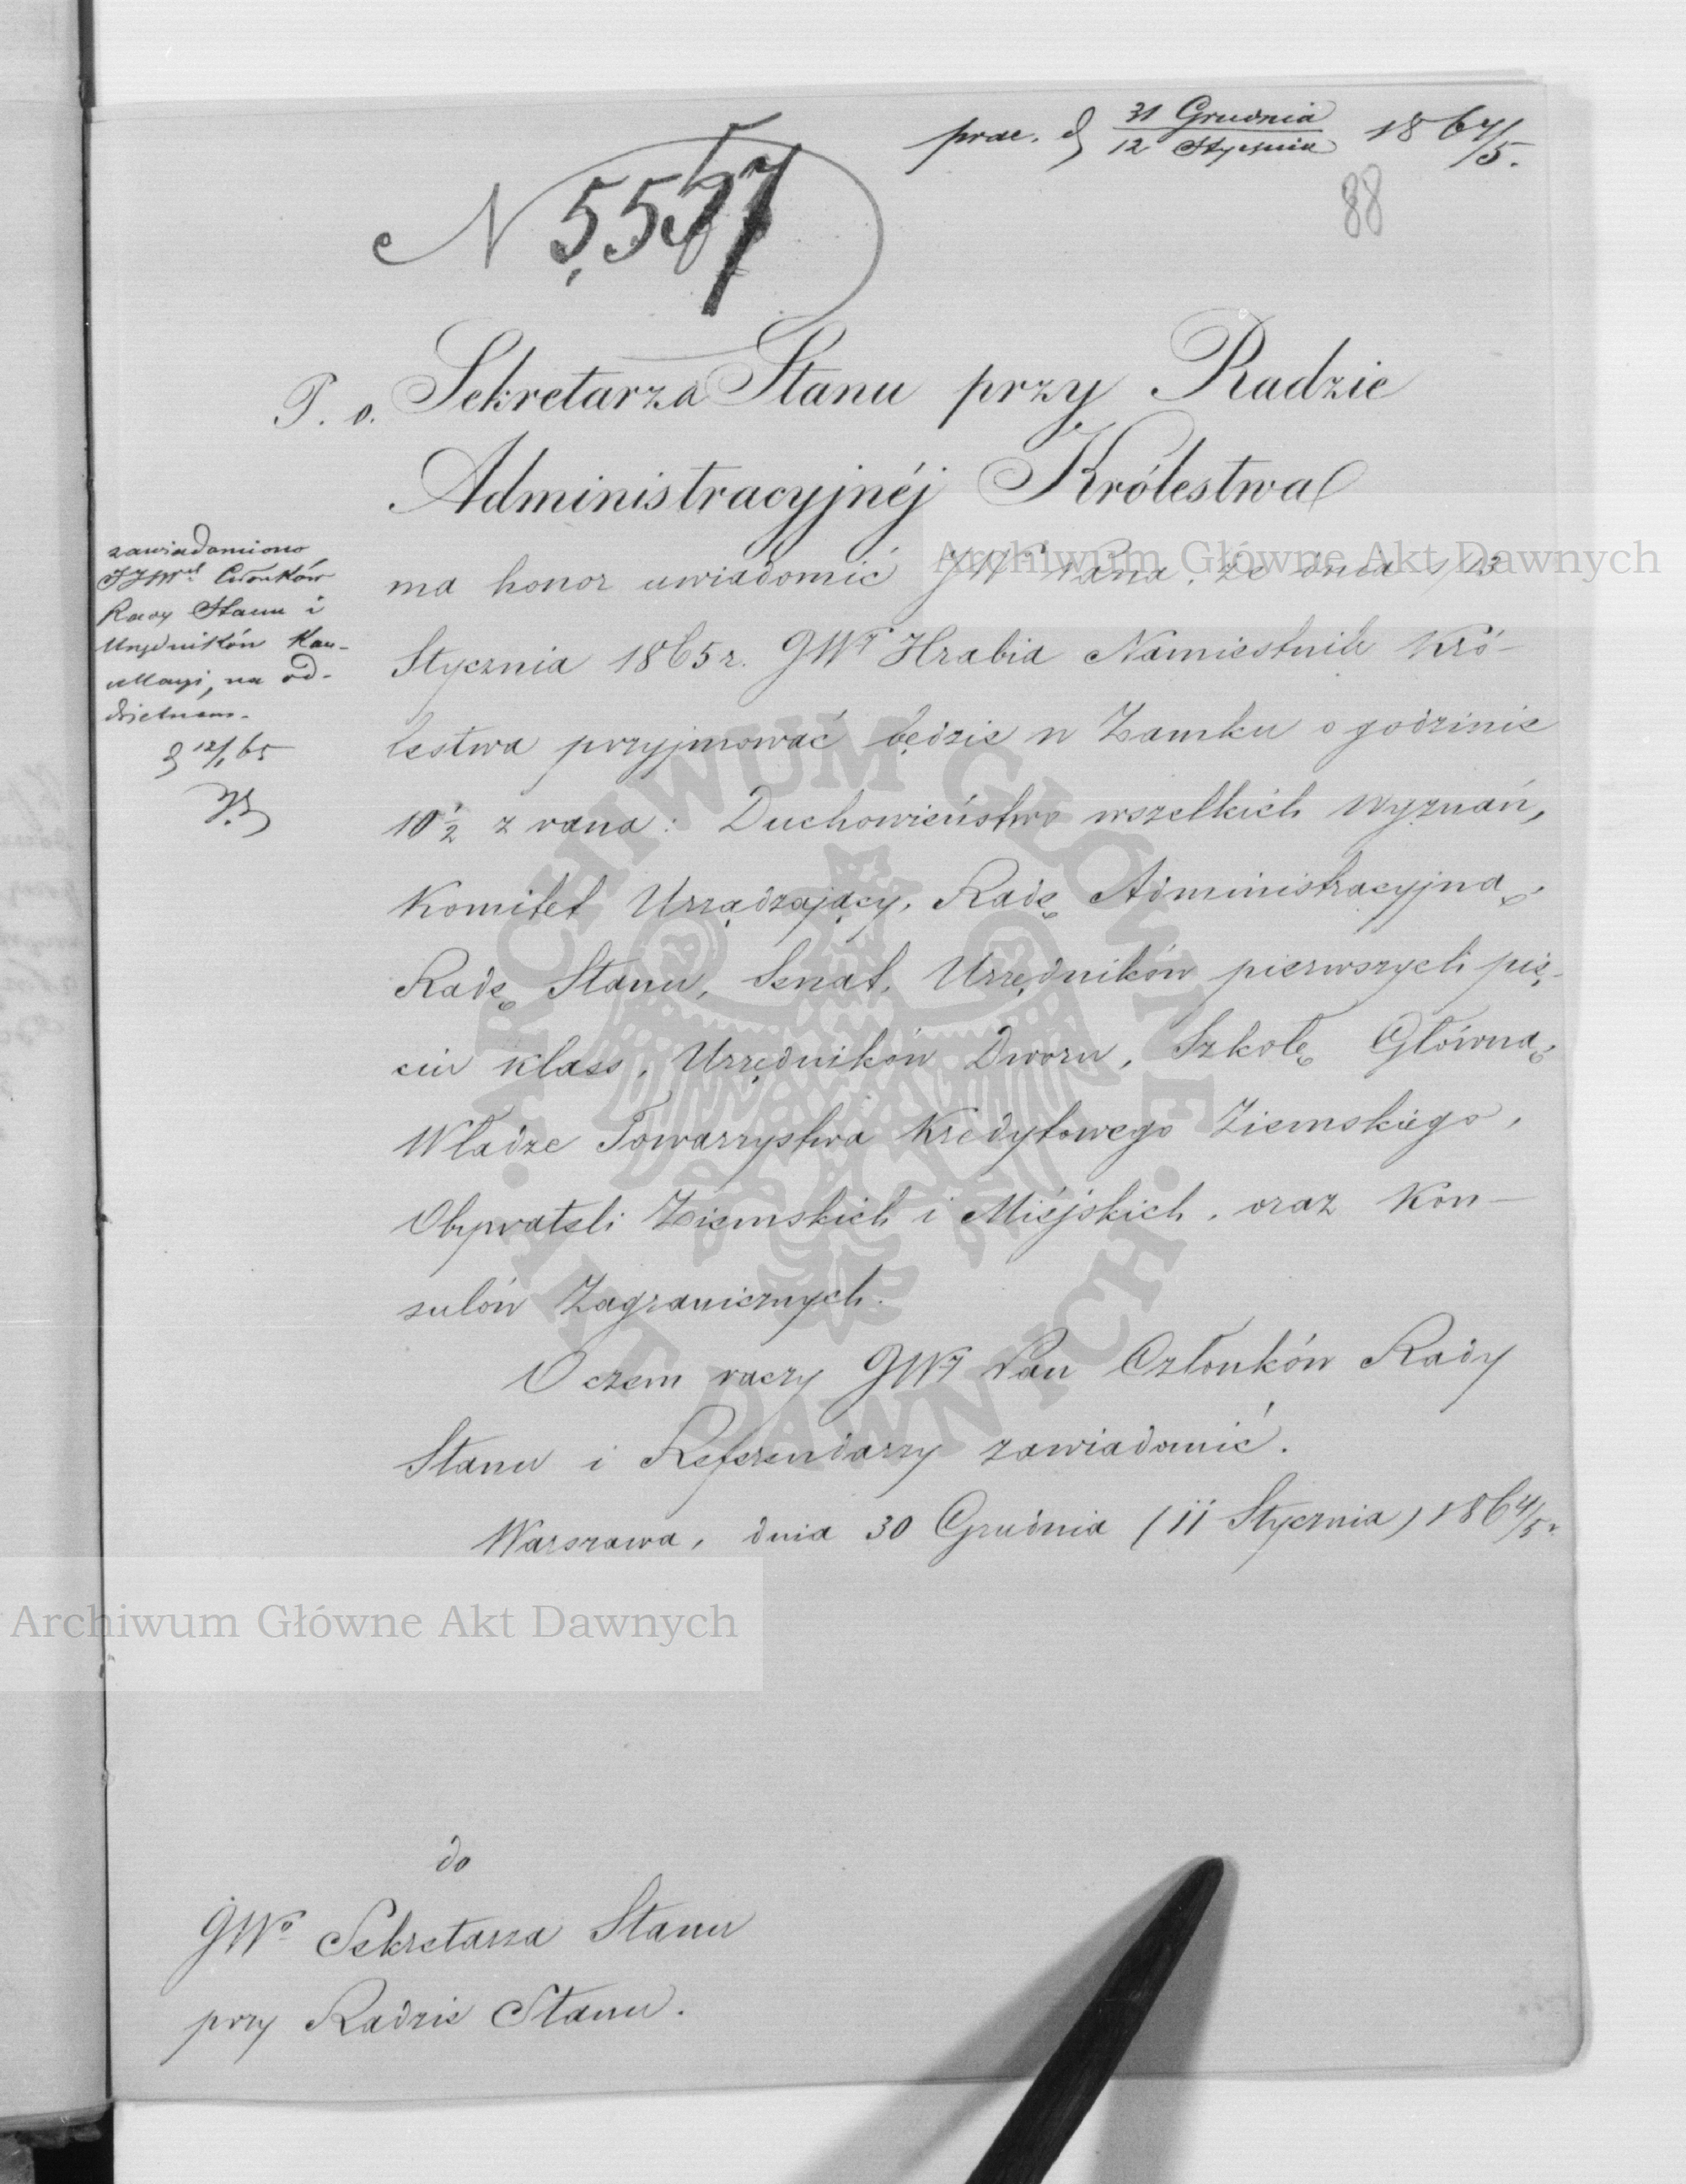 prae. d 31 Grudnia / 12 Stycznia 1864/5.
88
N 5557
P. o. Sekretarza Stanu przy Radzie
Administracyjnéj Królestwa
ma honor uwiadomić JWº Pana, że dnia 1/13
Stycznia 1865 r. JWy Hrabia Namiestnik Kró-
lestwa przyjmować będzie w Zamku o godzinie
10 1/2 z rana: Duchowieństwo wszelkich Wyznań,
Komitet Urządzający, Radę Administracyjną,
Radę Stanu, Senat, Urzędników pierwszych pię-
ciu klass, Urzędników Dworu, Szkołę Główną,
Władze Towarzystwa Kredytowego Ziemskiego,
Obywateli Ziemskich i Miéjskich, oraz Kon-
sulów Zagranicznych.
O czem raczy JWy Pan Członków Rady
Stanu i Referendarzy zawiadomić.
Warszawa, dnia 30 Grudnia (11 Stycznia) 1864/5 r.
zawiadomiono
JJWch Członków
Rady Stanu i
Urzędników Kan-
cellaryi, na od-
dzielnem.
d 12/1 65
do
JWº Sekretarza Stanu
przy Radzie Stanu.
Archiwum Główne Akt Dawnych
Archiwum Główne Akt Dawnych
ARCHIWUM GŁÓWNE AKT DAWNYCH